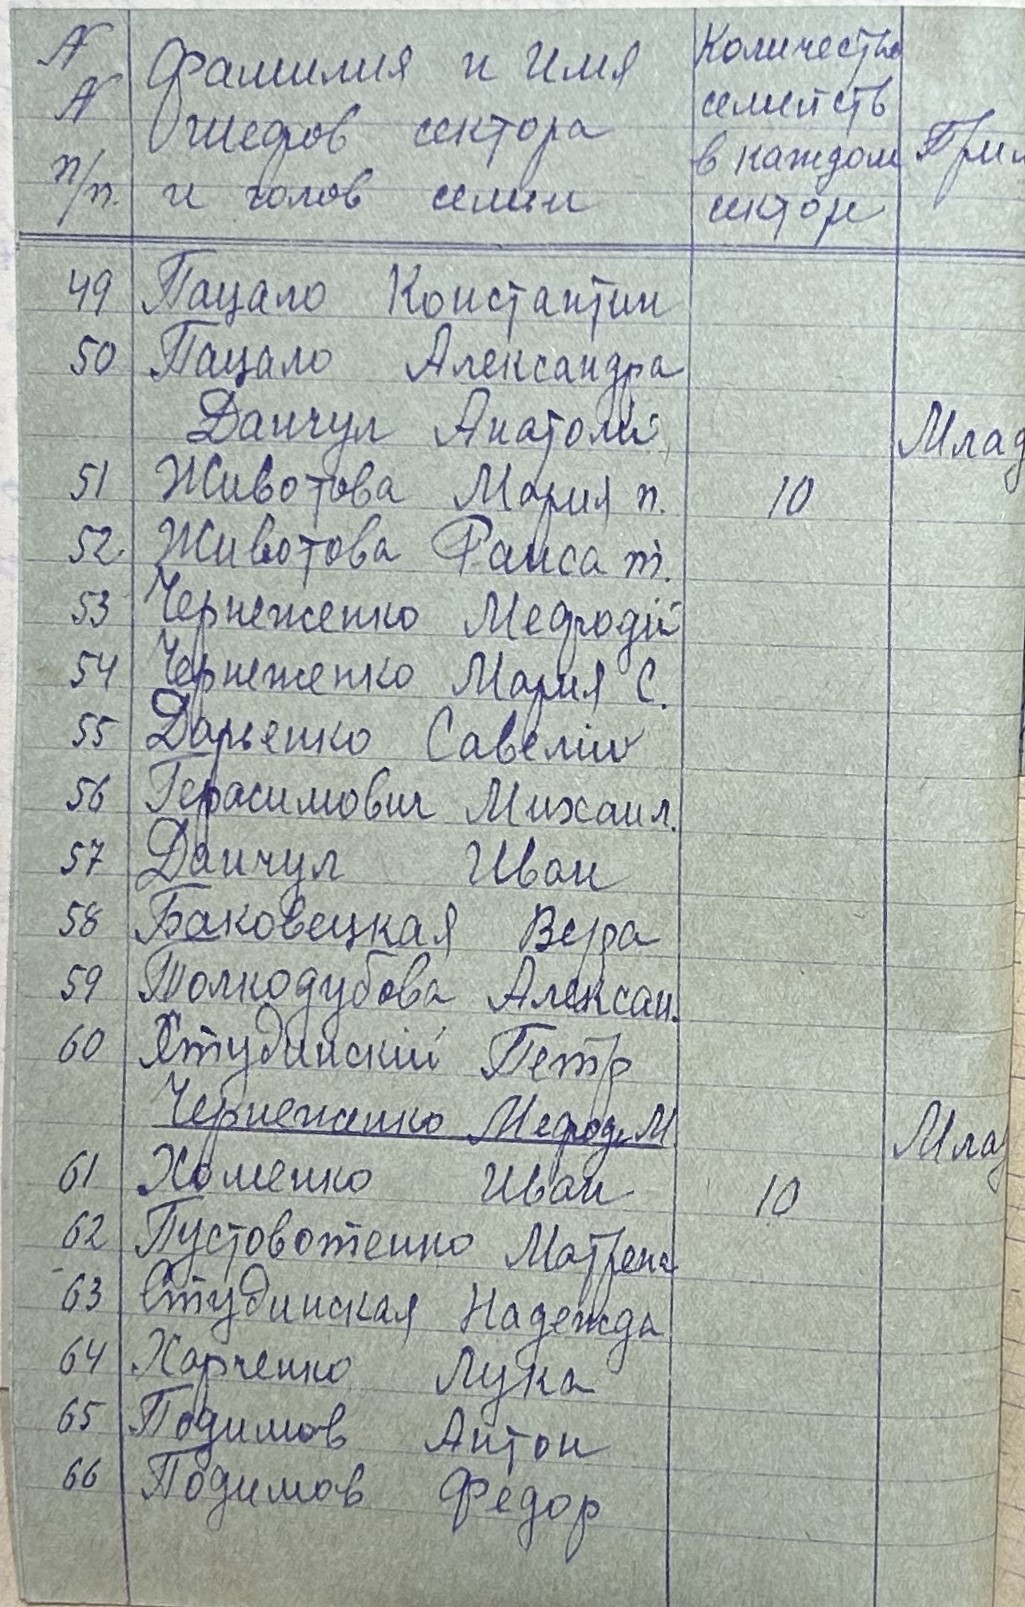 N Фамилия и Имя Количество
N шефов сектора семейств
п/п. и голов семьи в каждом секторе
49 Пацало Константин
50 Пацало Александра
Данчул Анатолий Млад
51 Животова Мария п. 10
52 Животова Раиса т.
53 Чернеженко Мефодій
54 Чернеженко Мария С.
55 Дарьенко Савелій
56 Герасимович Михаил.
57 Данчул Иван
58 Баковецкая Вера
59 Толкодубова Алексан.
60 Студинскій Петр
Чернеженко Мефод. М. Млад
61 Хоменко Иван 10
62 Пустовотенко Матрена
63 Студинская Надежда
64 Харченко Лука
65 Подимов Антон
66 Подимов Федор